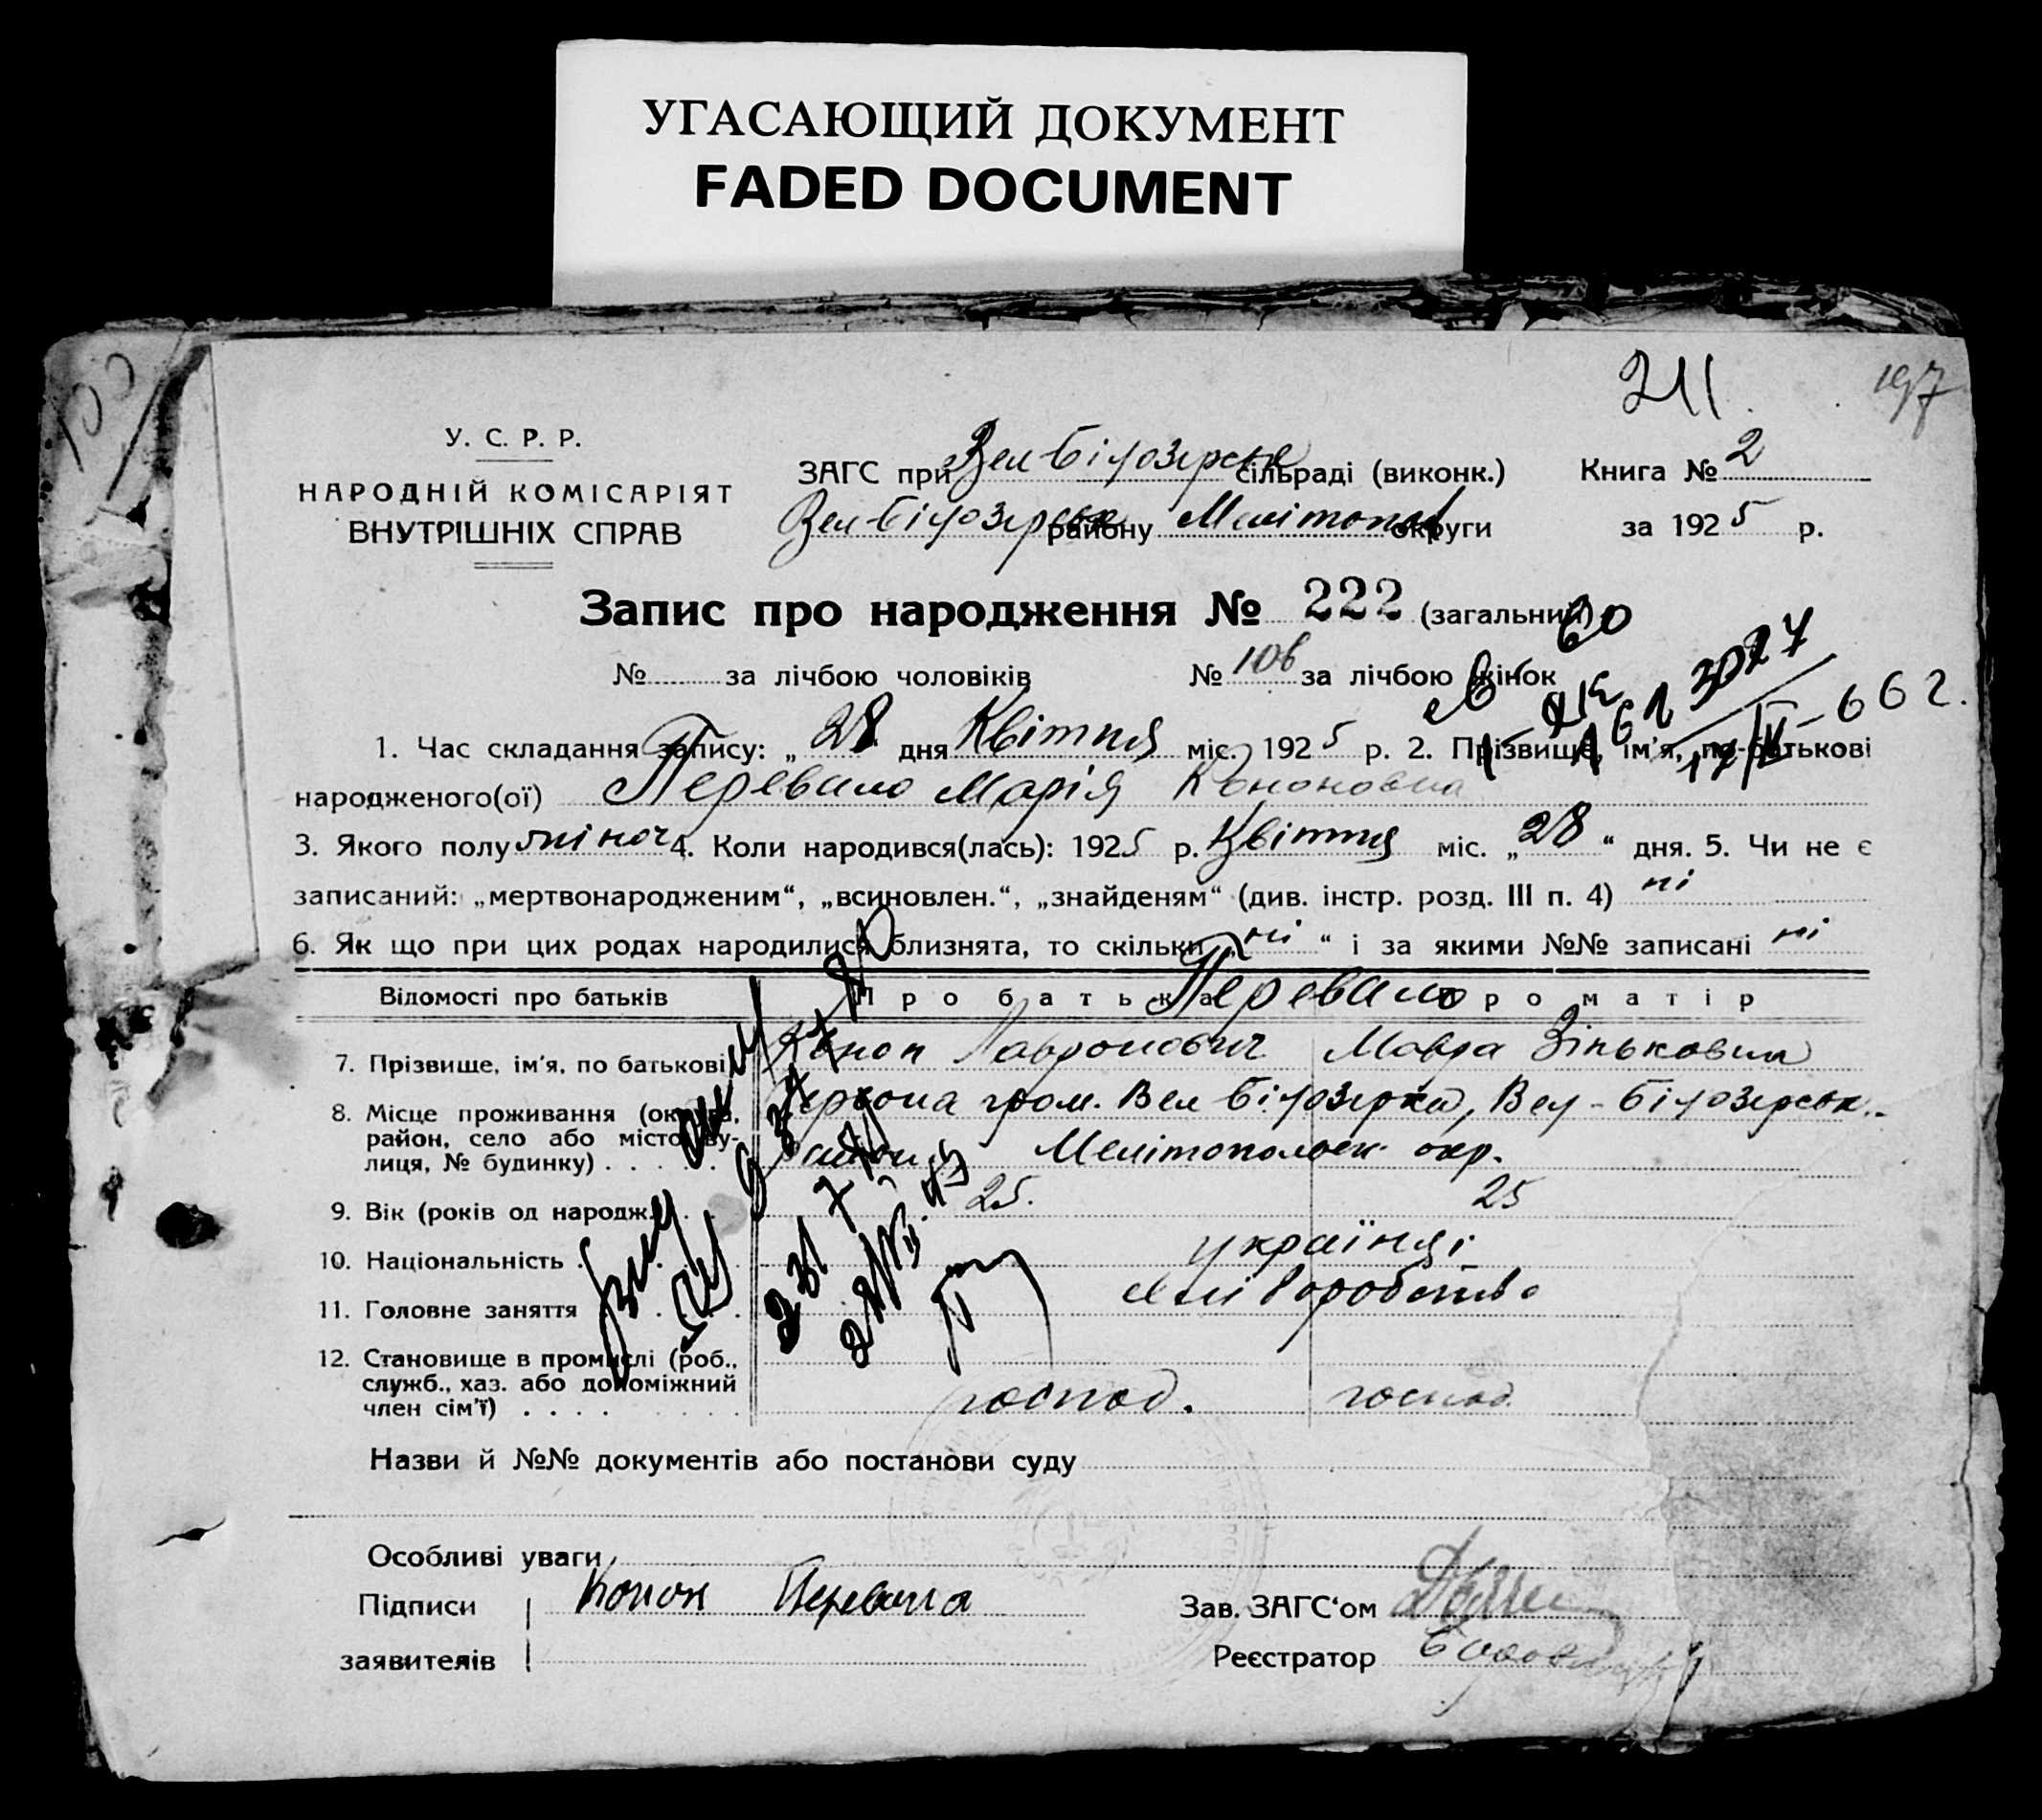 УГАСАЮЩИЙ ДОКУМЕНТ
FADED DOCUMENT
211.
197
У. С. Р. Р.
НАРОДНІЙ КОМІСАРІЯТ
ВНУТРІШНІХ СПРАВ
ЗАГС при Вел Білозерське сільраді (виконк.) Книга № 2
Вел-Білозерське району Мелітопол округи за 1925 р.
Запис про народження № 222 (загальний)
№ за лічбою чоловіків № 106 за лічбою жінок
1. Час складання запису: „28 дня Квітня міс. 1925 р. 2. Прізвище, ім'я, по-батькові
народженого(ої) Перевало Марія Кононовна
3. Якого полу жіноч 4. Коли народився(лась): 1925 р. Квітня міс. „28“ дня. 5. Чи не є
записаний: „мертвонародженим“, „всиновлен.“, „знайденям“ (див. інстр. розд. III п. 4) ні
6. Як що при цих родах народилися близнята, то скільки „ні“ і за якими №№ записані ні
Відомості про батьків Про батька Про матір
Перевало
7. Прізвище, ім'я, по батькові Конон Лавронович Мавра Зіньковна
8. Місце проживання (округа, район, село або місто, вулиця, № будинку) Червона гром. Вел Білозерка, Вел-Білозерськ.
району Мелітопольск окр.
9. Вік (років од народж.) 25. 25
10. Національність українці
11. Головне заняття хліборобство
12. Становище в промислі (роб., служб., хаз. або допоміжний член сім'ї) господ. господ.
Назви й №№ документів або постанови суду
Особливі уваги
Підписи Конон Перевала
заявителів
Зав. ЗАГС'ом
Реєстратор